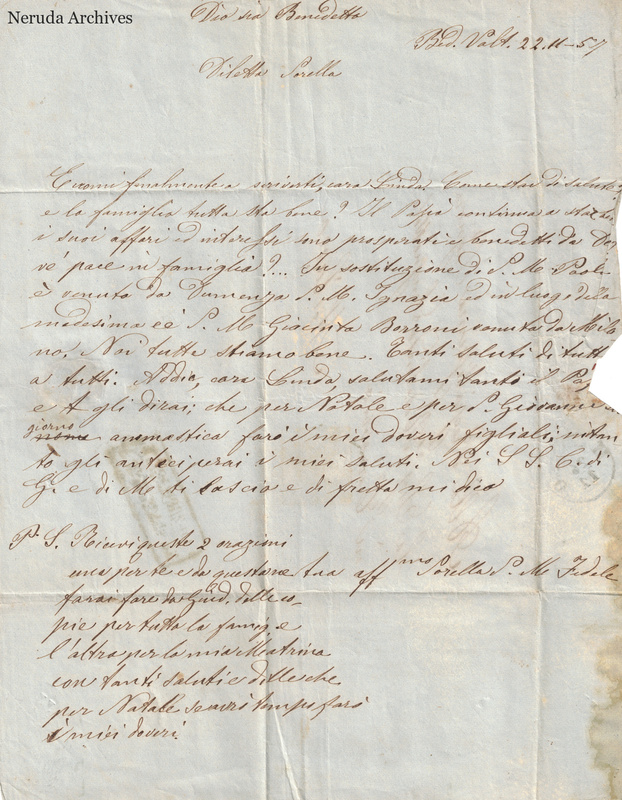 Neruda Archives
Dio sia Benedetto
Bed. Valt. 22.11-57
Diletta Sorella
Eccomi finalmente a scriverti, cara Linda. Come stai di salute?
e la famiglia tutta sta bene? Il Papà continua a star
i suoi affari ed interessi sono prosperati e benedetti da
v'é pace in famiglia?... In sostituzione di S. M. Paol
è venuta da Dumenza S. M. Ignazia ed in luogo della
medesima c'è S. M. Giacinta Borroni venuta da Mila
no. Noi tutte stiamo bene. Tanti saluti di tutt
a tutti. Addio, cara Linda salutami tanto il Pa
e gli dirai, che per Natale e per S. Giovanni
giorno
onomastica farò i miei doveri figliali; intan
to gli anteciperai i miei saluti. Nei S S. C. di
G. e di M. ti lascio e di fretta mi dico
P. S. Ricevi queste 2 orazioni
una per te e da questa ne tua aff mo Sorella S. M. Fedele
farai fare da Guid. delle co-
pie per tutta la famig. e
l'altra per la mia Matrina
con tanti saluti e dille che
per Natale se avrò tempo farò
i miei doveri.